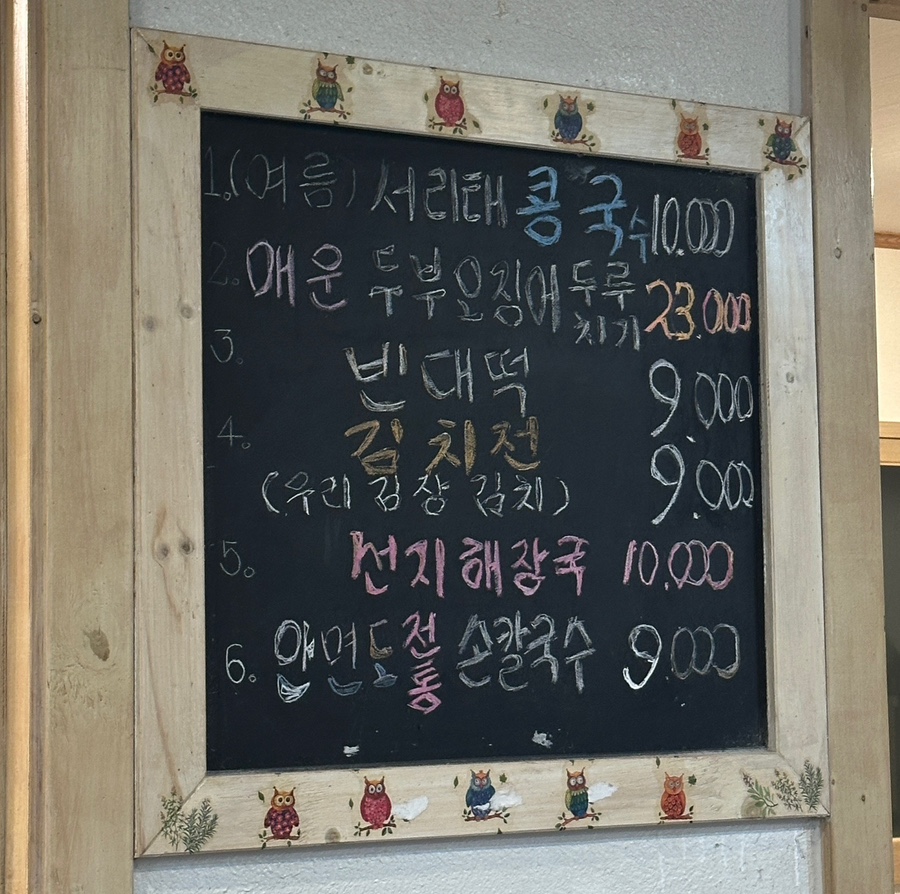 1.(여름) 서리태 콩국수 10.000
2. 매운 두부오징어 두루치기 23.000
3. 빈대떡 9.000
4. 김치전 9.000
(우리 김장 김치)
5. 선지해장국 10.000
6. 안면도 전통 손칼국수 9.000